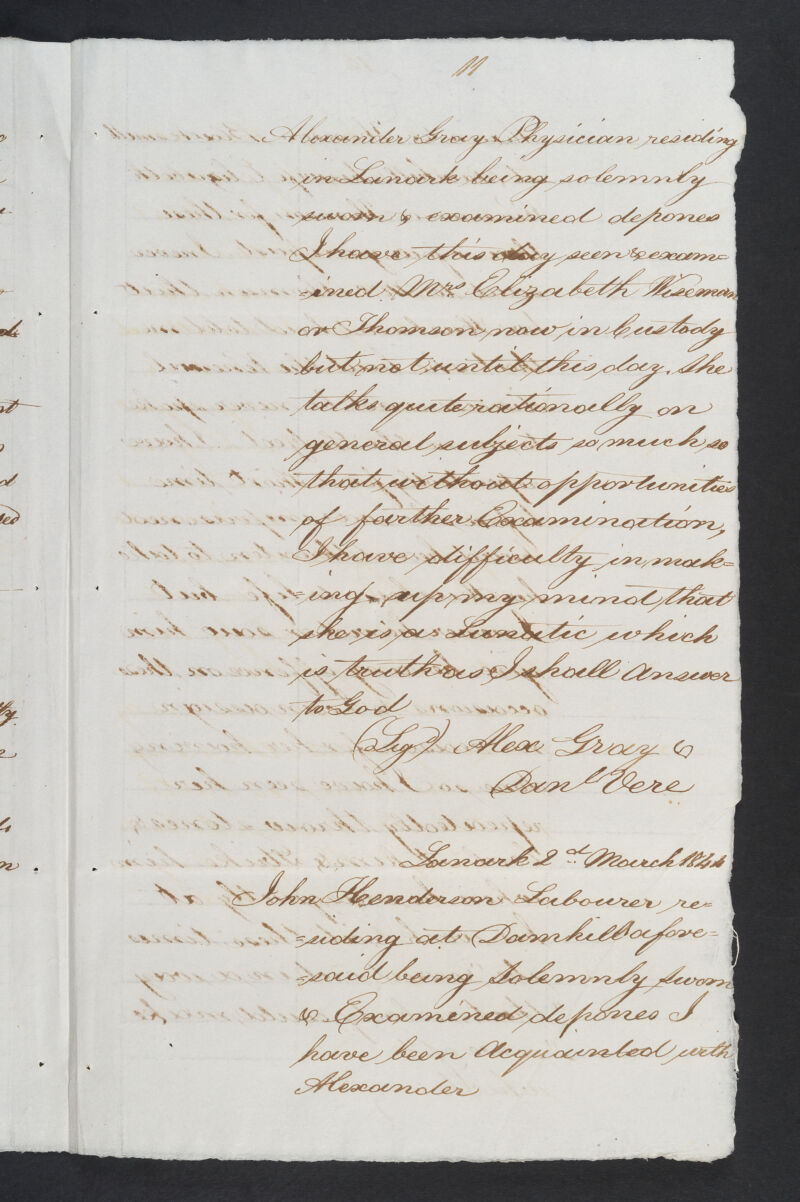 11
Alexander Gray Physician residing
in Lanark being solemnly
sworn & examined depones
I have this day seen & exam=
=ined Mrs Elizabeth Wiseman
or Thomson now in Custody
but not until this day. She
talks quite rationally on
general subjects so much so
that without opportunities
of farther Examination,
I have difficulty in mak=
=ing up my mind that
she is a Lunatic which
is truth as I shall Answer
to God
(Sigd) Alex Gray &
Danl Vere
Lanark 2nd March 1844
John Henderson Labourer re=
=siding at Damhill afore=
=said being Solemnly Sworn
& Examined depones I
have been Acquainted with
Alexander